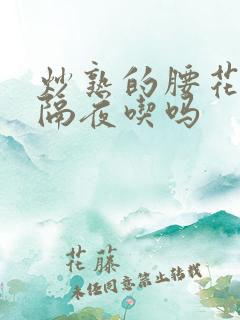 炒熟的腰花
隔夜喫吗
花藤
未经同意禁止转载